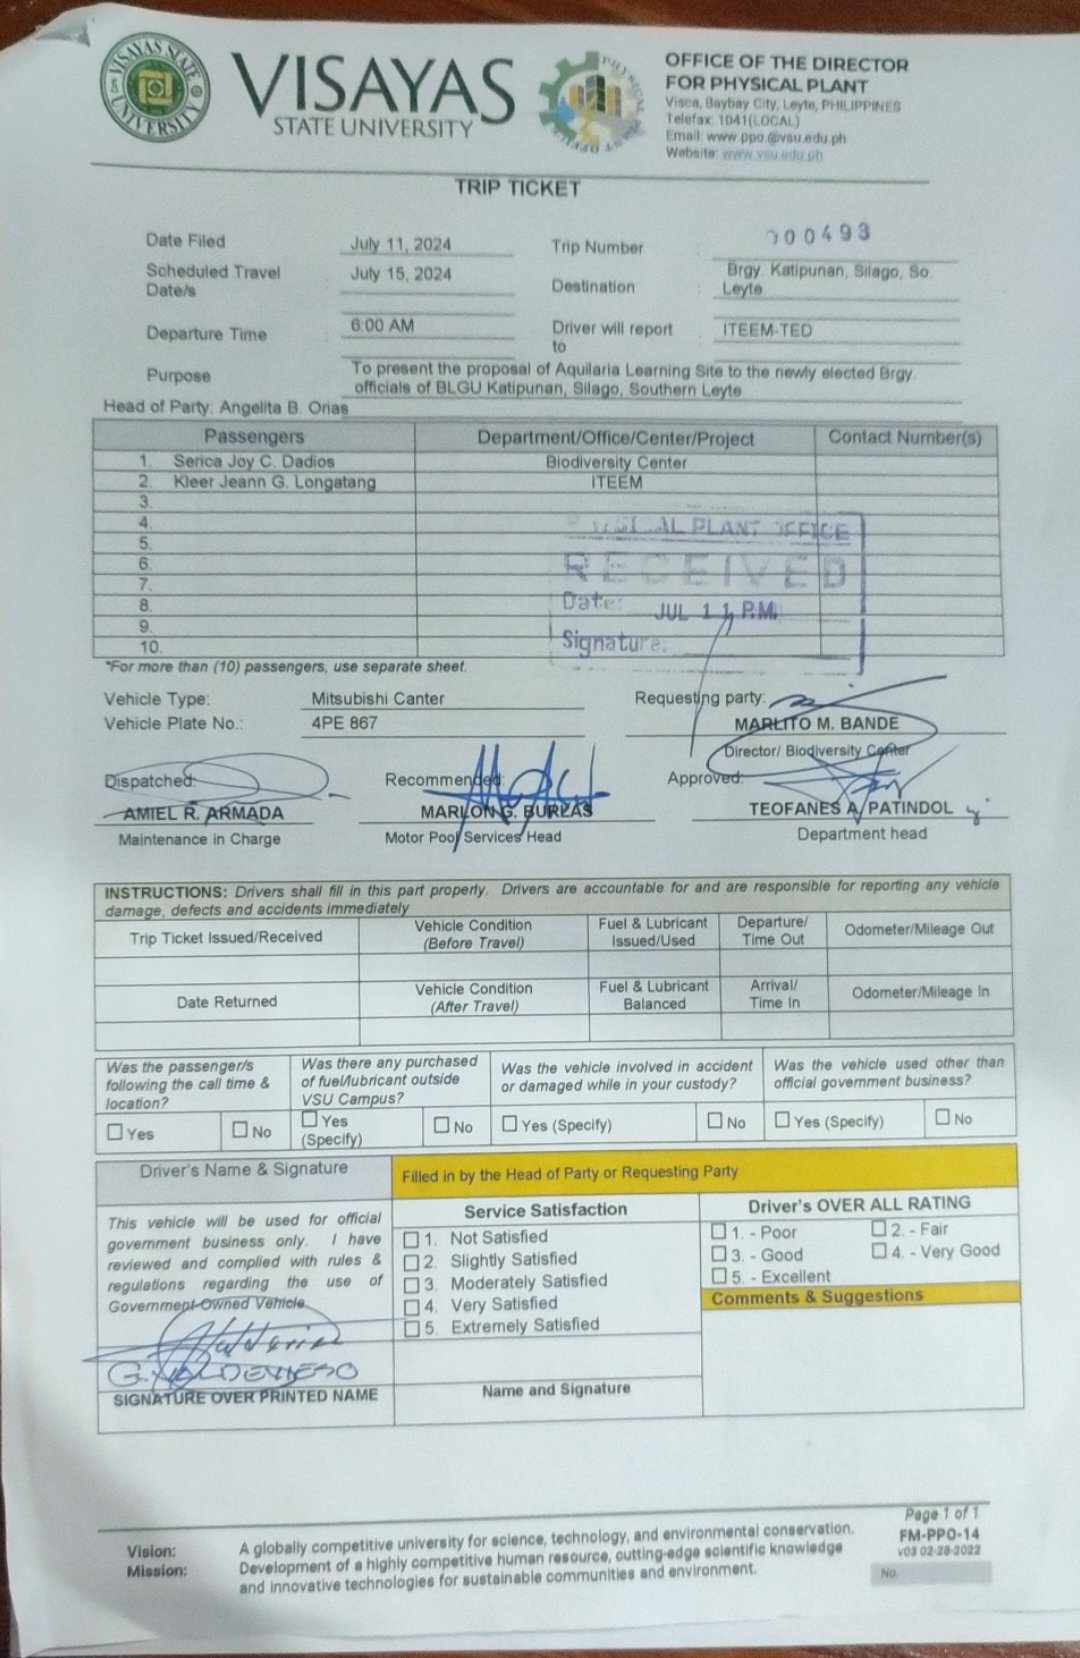 VISAYAS STATE UNIVERSITY
VISAYAS
STATE UNIVERSITY
OFFICE OF THE DIRECTOR
FOR PHYSICAL PLANT
Visca, Baybay City, Leyte, PHILIPPINES
Telefax: 1041(LOCAL)
Email: www.ppo.@vsu.edu.ph
Website: www.vsu.edu.ph
TRIP TICKET
Date Filed : July 11, 2024 Trip Number : 000493
Scheduled Travel Date/s : July 15, 2024 Destination : Brgy. Katipunan, Silago, So. Leyte
Departure Time : 6:00 AM Driver will report to : ITEEM-TED
Purpose : To present the proposal of Aquilaria Learning Site to the newly elected Brgy.
officials of BLGU Katipunan, Silago, Southern Leyte
Head of Party: Angelita B. Orias
Passengers Department/Office/Center/Project Contact Number(s)
1. Serica Joy C. Dadios Biodiversity Center
2. Kleer Jeann G. Longatang ITEEM
3.
4.
5.
6.
7.
8.
9.
10.
PLANT OFFICE
RECEIVED
Date: JUL 11 P.M.
Signature:
*For more than (10) passengers, use separate sheet.
Vehicle Type: Mitsubishi Canter Requesting party:
Vehicle Plate No.: 4PE 867 MARLITO M. BANDE
Director/ Biodiversity Center
Dispatched: Recommended: Approved:
AMIEL R. ARMADA MARLON G. BURLAS TEOFANES A. PATINDOL
Maintenance in Charge Motor Pool Services Head Department head
INSTRUCTIONS: Drivers shall fill in this part properly. Drivers are accountable for and are responsible for reporting any vehicle
damage, defects and accidents immediately
Trip Ticket Issued/Received Vehicle Condition (Before Travel) Fuel & Lubricant Issued/Used Departure/ Time Out Odometer/Mileage Out
Date Returned Vehicle Condition (After Travel) Fuel & Lubricant Balanced Arrival/ Time In Odometer/Mileage In
Was the passenger/s following the call time & location? Was there any purchased of fuel/lubricant outside VSU Campus? Was the vehicle involved in accident or damaged while in your custody? Was the vehicle used other than official government business?
Yes No Yes (Specify) No Yes (Specify) No Yes (Specify) No
Driver's Name & Signature
This vehicle will be used for official
government business only. I have
reviewed and complied with rules &
regulations regarding the use of
Government-Owned Vehicle.
G. VALDEVIESO
SIGNATURE OVER PRINTED NAME
Filled in by the Head of Party or Requesting Party
Service Satisfaction
1. Not Satisfied
2. Slightly Satisfied
3. Moderately Satisfied
4. Very Satisfied
5. Extremely Satisfied
Name and Signature
Driver's OVER ALL RATING
1. - Poor 2. - Fair
3. - Good 4. - Very Good
5. - Excellent
Comments & Suggestions
Vision: A globally competitive university for science, technology, and environmental conservation.
Mission: Development of a highly competitive human resource, cutting-edge scientific knowledge
and innovative technologies for sustainable communities and environment.
Page 1 of 1
FM-PPO-14
v03 02-28-2022
No.